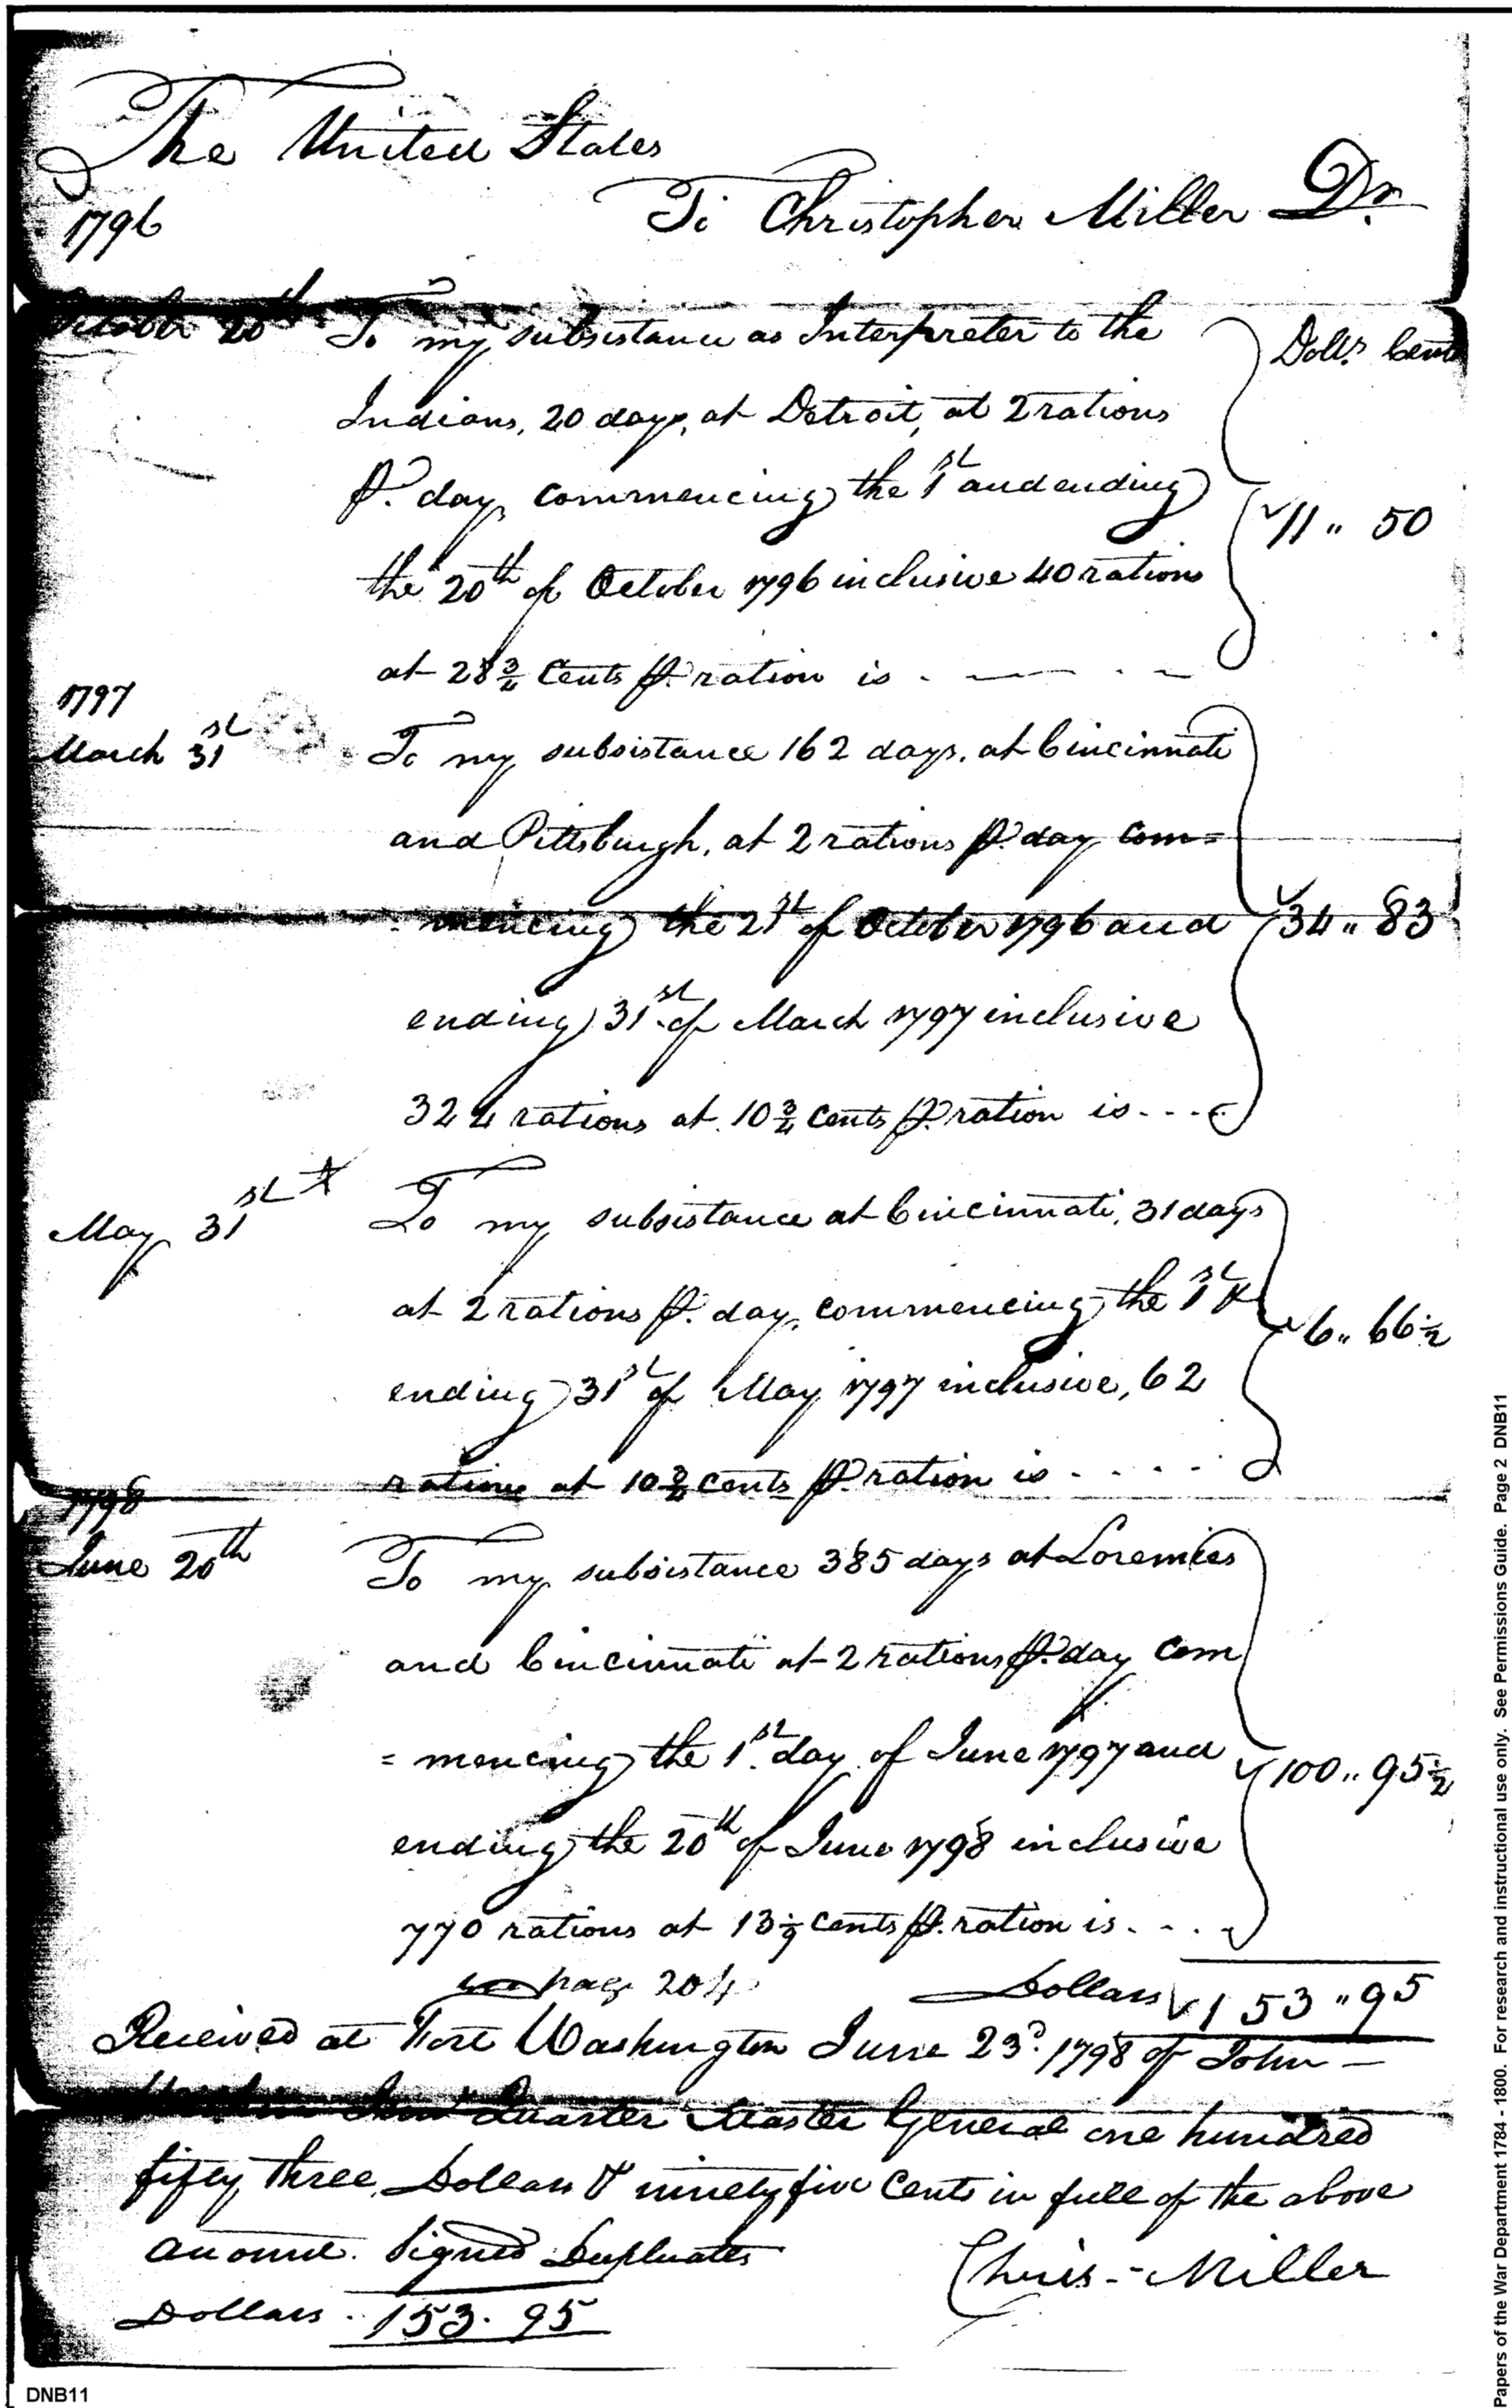 The United States
To Christopher Miller Dr.
1796
October 20th To my subsistance as Interpreter to the Dolls. Cents
Indians, 20 days, at Detroit, at 2 rations
P. day, commencing the 1st and ending
the 20th of October 1796 inclusive 40 rations 11 " 50
at 28 3/4 Cents P. ration is . — - . -
1797
March 31st To my subsistance 162 days, at Cincinnati
and Pittsburgh, at 2 rations P. day com=
mencing the 21st of October 1796 and 34 " 83
ending 31st of March 1797 inclusive
324 rations at 10 3/4 Cents P. ration is . . . .
May 31st To my subsistance at Cincinnati, 31 days
at 2 rations P. day, commencing the 1st &
ending 31st of May 1797 inclusive, 62 6 " 66 1/2
rations at 10 3/4 Cents P. ration is . . . .
1798
June 20th To my subsistance 385 days at Loremies
and Cincinnati at 2 rations P. day com
= mencing the 1st day of June 1797 and 100 " 95 1/2
ending the 20th of June 1798 inclusive
770 rations at 13 1/9 Cents P. ration is . . .
page 204 Dollars 153 " 95
Received at Fort Washington June 23d. 1798 of John —
Quarter Master General one hundred
fifty three Dollars & ninety five Cents in full of the above
amount. Signed Duplicates
Chris - Miller
Dollars . 153 . 95
DNB11
Papers of the War Department 1784 - 1800. For research and instructional use only. See Permissions Guide. Page 2 DNB11